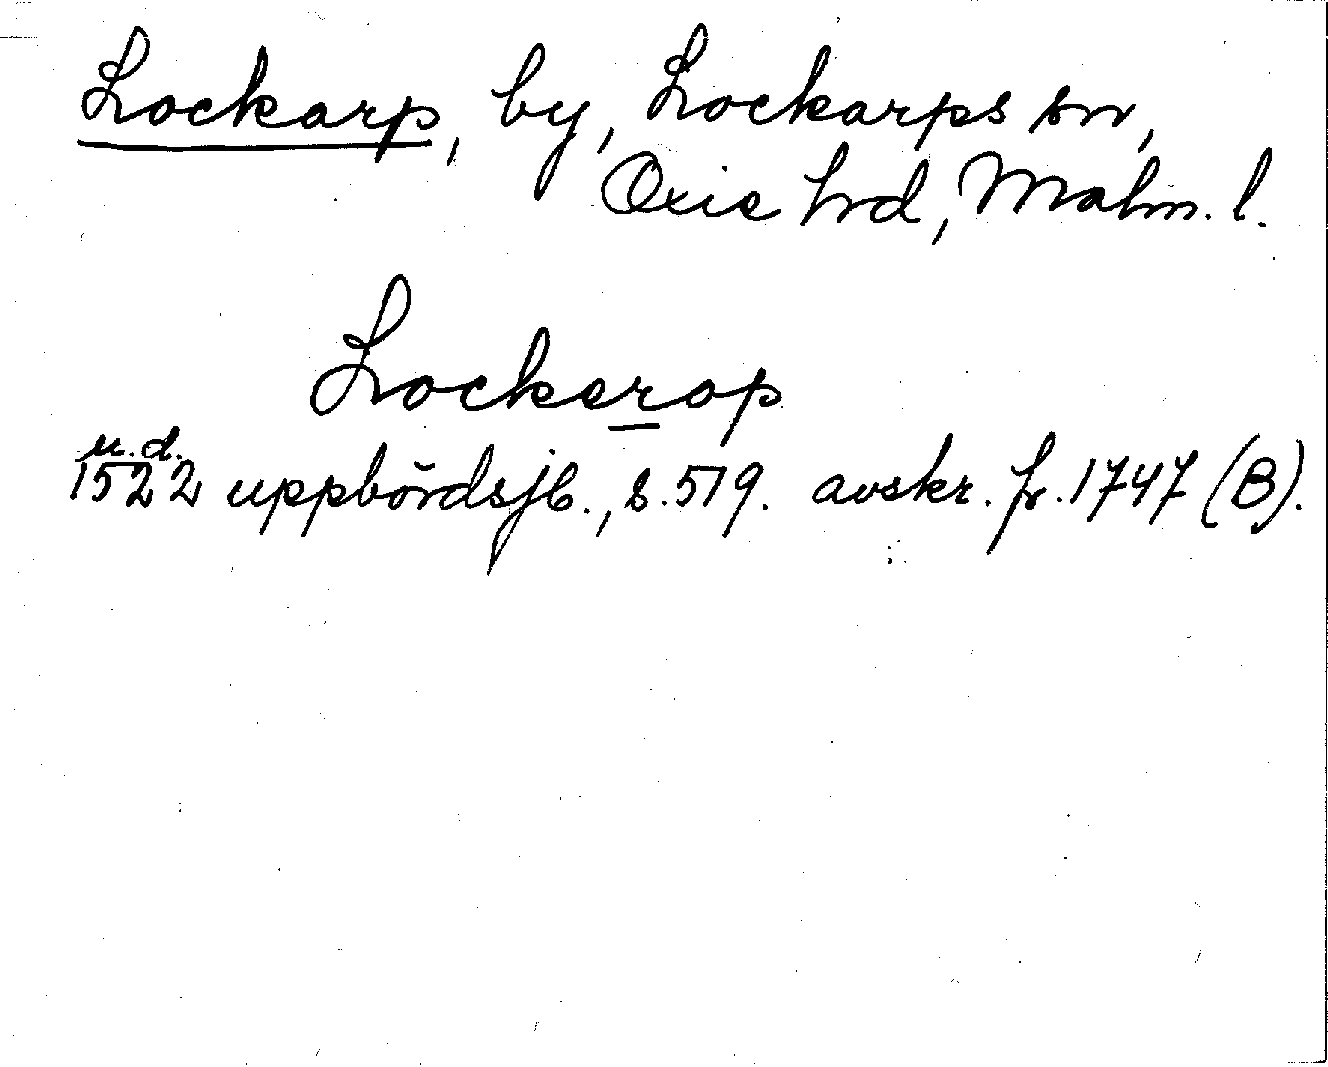 Lockarp, by, Lockarps sn,
Oxie hrd, Malm. l.
Lockerop
u. d.
1522 uppbördsjb., s. 519. avskr. fr. 1747 (B).